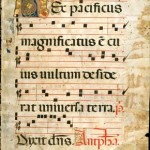 Rex pacificus
magnificatus ē cu
ius vultum deside
rat universa terra.
Dixit dn̄s. Antipha.